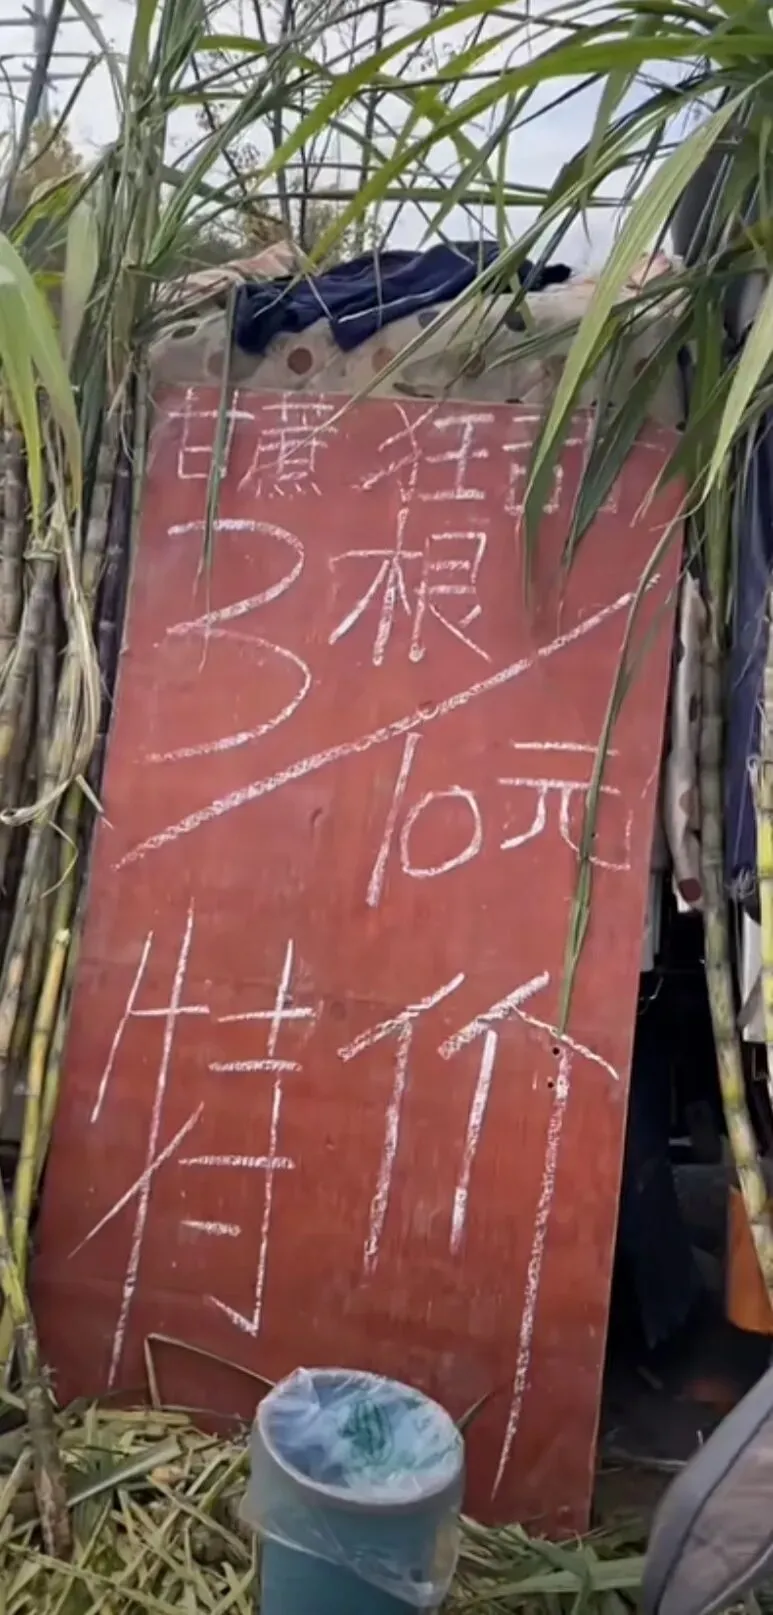 甘蔗狂
3根
/10元
特价